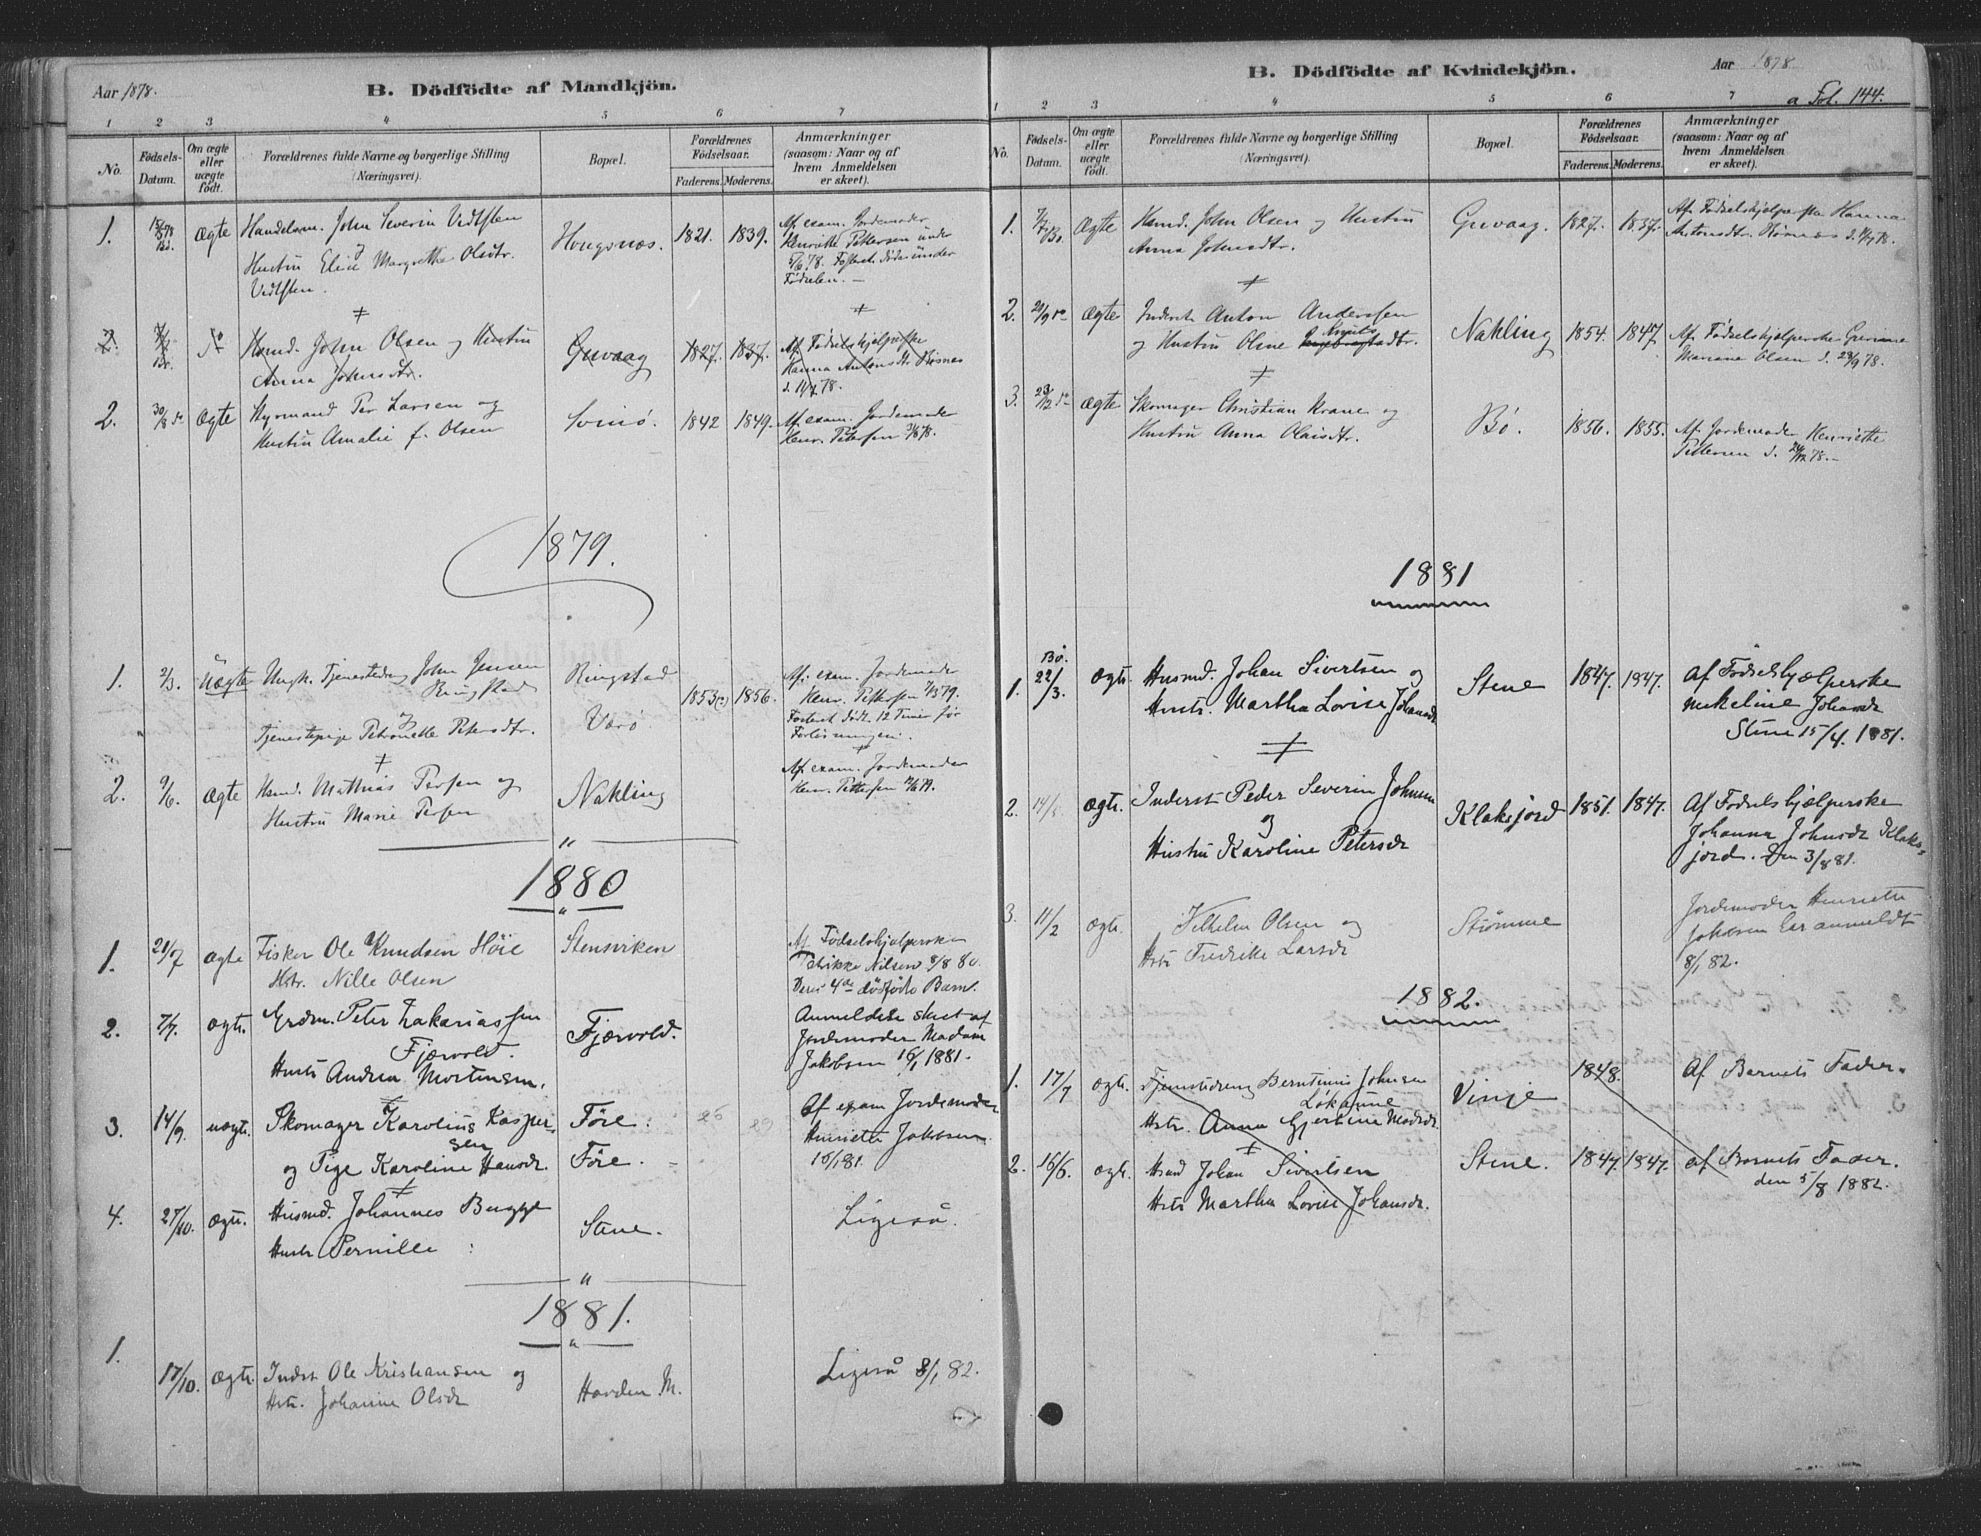 Aar 1878.
B. Dödfödte af Mandkjön.
1 2 3 4 5 6 7
No.
Födsels-Datum.
Om ægte eller uægte födt.
Forældrenes fulde Navne og borgerlige Stilling
(Næringsvei).
Bopæl.
Forældrenes Födselsaar.
Faderens. Moderens.
Anmærkninger
(saasom: Naar og af
hvem Anmeldelsen
er skeet).
1. ægte Handelsm. John Severin
Hustru Elise Margrethe Olsdtr.
1821. 1839.
Af exam. Jordemoder
Henriette Pettersen under
5/6 78. Fosteret døde under
Fødselen. —
2. Hsmd. John Olsen og Hustru
Anna Johnsdtr.
Guvaag 1827. 1837.
Af Fødselshjælperske
Hanna Antonsdtr.
2. 30/8 ægte Styrmand Per Larsen og
Hustru Amalie f. Olsen
1842 1849.
Af exam. Jordemoder
Henr. Pettersen
1879.
1. 2/3. Uægte Ungk. Tjenestedreng John Jensen
Ringstad
Tjenestepige Petronelle Petersdtr.
Ringstad
Værø
1853(?) 1856.
Af exam. Jordemoder
Henr. Pettersen
Fosteret død 12 Timer før
Forløsningen.
2. 9/6. ægte Hsmd. Mathias Persen og
Hustru Marie Persen
Nakling
Af exam. Jordemoder
Henr. Pettersen
1880
1. 21/7 ægte Fisker Ole Knudsen Höie
Hstr. Nille Olsen
Stensviken
Af Fødselshjælperske
Nilsen 8/8 80.
Deres 4de dødfødte Barn.
2. 7/7. ægte. Grdm. Peter Zakariassen
Fjærvold.
Hustr Andrea Mortensen.
Fjærvold.
Anmeldelse skeet af
Jordemoder Madam
Jakobsen 16/1 1881.
3. 14/9. uægt. Skomager Karolius Kasper-
sen
og Pige Karoline Hansdr.
Före.
Före.
Af exam Jordemoder
Henriette Jakobsen.
16/1 81.
4. 27/10. ægte. Husmd. Johannes Bugge
Hustr Pernille
Stene.
Ligeså.
1881.
1. 17/10. ægte. Inderst Ole Kristiansen og
Hstr. Johanne Olsdr
Hovden M.
Ligeså 8/1 82.
B. Dödfödte af Kvindekjön.
Aar 1878
a Fol. 144.
1 2 3 4 5 6 7
No.
Födsels-Datum.
Om ægte eller uægte födt.
Forældrenes fulde Navne og borgerlige Stilling
(Næringsvei).
Bopæl.
Forældrenes Födselsaar.
Faderens. Moderens.
Anmærkninger
(saasom: Naar og af
hvem Anmeldelsen
er skeet).
1. Ægte Hsmd. John Olsen og Hustru
Anna Johnsdtr.
Guvaag. 1827. 1837.
Af Fødselshjælperske Hanna
Antonsdtr.
2. ægte Inderst Anton Andersen
og Hustru Oline Knutsdtr.
Nakling 1854. 1847
Af Fødselshjælperske
Mariane Olsen d. 28/9 78.
3. ægte Skomager Christian Krane og
Hustru Anna Olaisdtr.
Bö. 1856. 1855.
Af Jordemoder Henriette
Pettersen d.
1881
Bö.
1. 22/3. ægte. Husmd. Johan Sivertsen og
Hustr. Martha Lovise Johansdr
Stene 1847. 1847.
Af Födselshjælperske
Mekeline Johansdr
Stene 15/4. 1881.
2. ægte. Inderst Peder Severin Johnsen
og
Hustru Karoline Petersdr
Klaksjord 1851. 1847.
Af Födselshjælperske
Johanna Johnsdr Klaks-
jord. Den 3/8 81.
3. 11/2 ægte. Vilhelm Olsen og
Hstr Fredrike Larsdr
Strömme
Jordemoder Henriette
Jakobsen har anmeldt
8/1 82.
1882.
1. 17/7 ægte. Tjenestedreng Berntinius Johnsen
Hstr. Anna Gjertine
Vinje 1848.
Af Barnets Fader.
2. 16/6. ægte. Hsmd Johan Sivertsen
Hstr Martha Lovise Johansdr.
Stene. 1847. 1847.
af Barnets Fader.
den 5/8 1882.